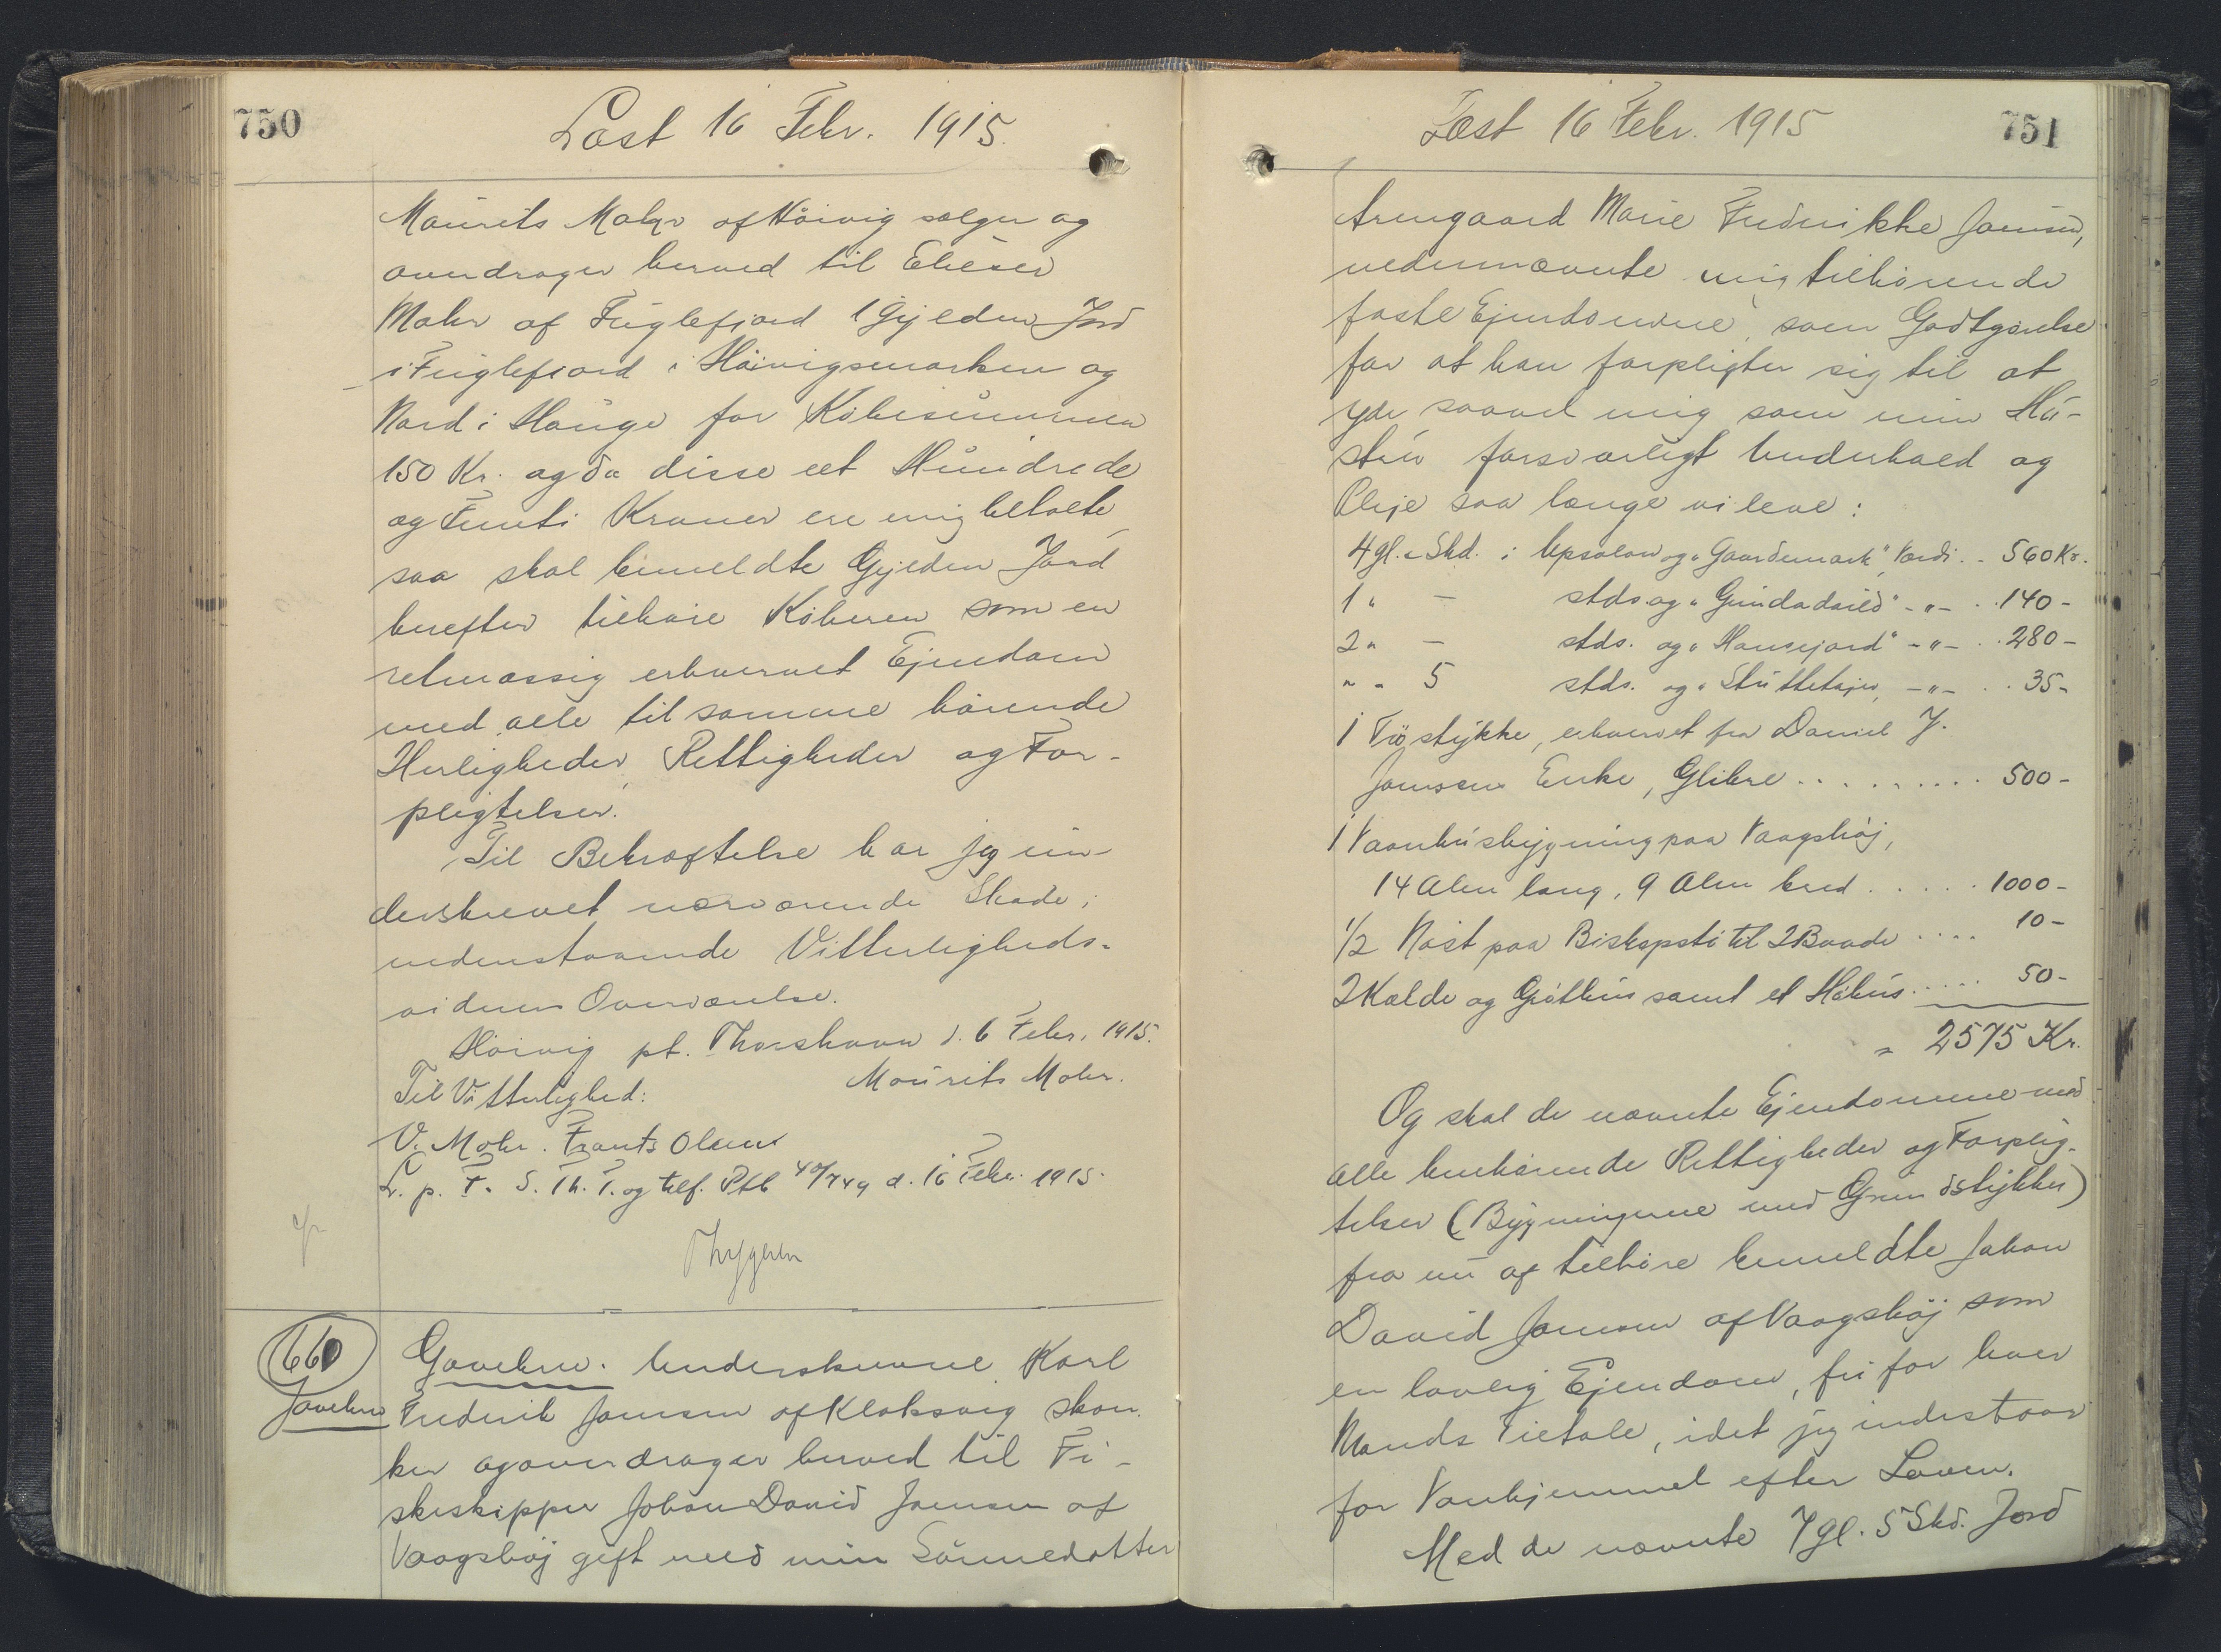 750
Læst 16 Febr. 1915.
Maurits Mohr af Höivig sælger og
overdrager herved til Elieser
Mohr af Fuglefjord 1 Gylden Jord
i Fuglefjord i Höivigsmarken og
Nord i Hauge for Köbesummen
150 Kr. og da disse eet Hundrede
og Femti Kroner ere mig betalte
saa skal bemeldte Gylden Jord
herefter tilhøre Köberen som en
retmæssig erhvervet Ejendom
med alle til samme hörende
Herligheder, Rettigheder og For-
pligtelser.
Til Bekræftelse har jeg un-
derskrevet nærværende Skøde i
nedenstaaende Vitterligheds-
vidners Overværelse.
Höivig pt. Thorshavn d. 6 Febr. 1915.
Til Vitterlighed: Maurits Mohr.
V. Mohr. Frants Olsen
L. p. F. S. Th. T. og tilf. Ptb 40/749 d. 16 Febr. 1915.
Thygesen
660
Gavebrev
Gavebrev. Underskrevne Karl
Frederik Joensen af Klaksvig skæn-
ker og overdrager herved til Fi-
skeskipper Johan David Joensen af
Vaagshöj gift med min Sönnedatter
751
Læst 16 Febr. 1915
Armgaard Marie Frederikke Joensen,
nedennævnte mig tilhörende
faste Ejendomme, som Godtgörelse
for at han forpligter sig til at
yde saavel mig som min Hu-
stru forsvarligt Underhold og
Pleje saa længe vi leve:
4 gl. " Skd. i Upsalon og "Gaardemark", Værdi . . 560 Kr.
1 " — stds. og " - " - . . 140 -
2 " — stds. og "Hansejord" - " - . . 280 -
" " 5 stds. og - " - . . 35 -
1 Tröstykke, erhvervet fra Daniel J.
Joensens Enke, Glibre . . . . . . . . . 500 -
1 Vaanhusbygning paa Vaagshöj,
14 Alen lang, 9 Alen bred . . . . . 1000 -
1/2 Nöst paa Biskopstö til 2 Baade . . . . 10 -
2 Kælde og Gróthús samt et Höhus . . . . . 50 -
= 2575 Kr.
Og skal de nævnte Ejendomme med
alle henhörende Rettigheder og Forplig-
telser (Bygningerne med Grundstykker)
fra nu af tilhöre bemeldte Johan
David Joensen af Vaagshöj som
en lovlig Ejendom, fri for hver
Mands Tiltale, idet jeg indestaar
for Vanhjemmel efter Loven.
Med de nævnte 7 gl. 5 Skd. Jord